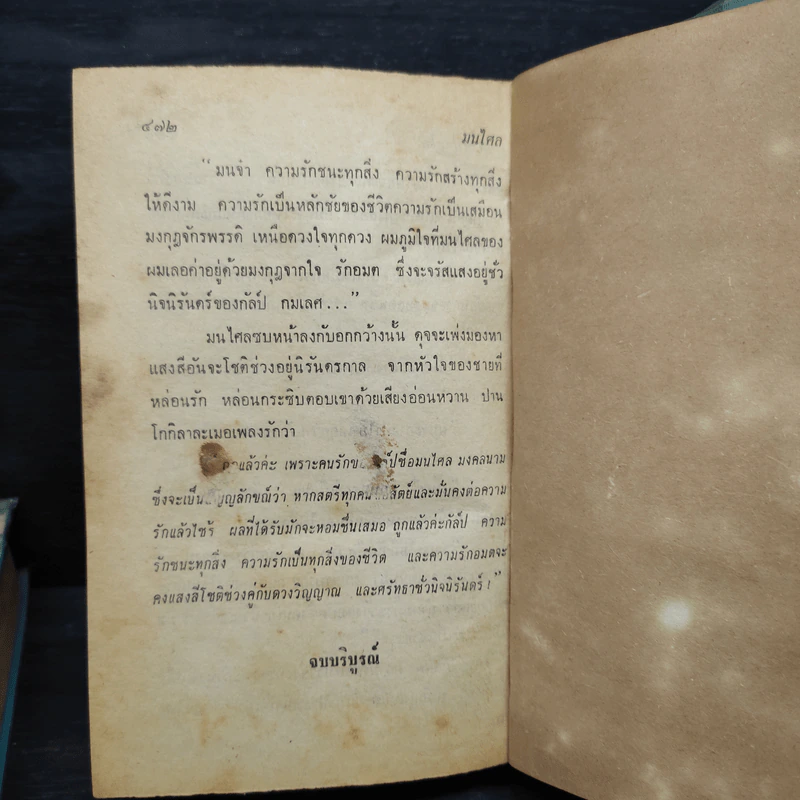 ๔๗๒
มนไศล
"มนจ๋า ความรักชนะทุกสิ่ง ความรักสร้างทุกสิ่ง
ให้ดีงาม ความรักเป็นหลักชัยของชีวิตความรักเป็นเสมือน
มงกุฎจักรพรรดิ เหนือดวงใจทุกดวง ผมภูมิใจที่มนไศลของ
ผมเลอค่าอยู่ด้วยมงกุฎจากใจ รักอมต ซึ่งจะจรัสแสงอยู่ชั่ว
นิจนิรันดร์ของกัลป์ กมเลศ..."
มนไศลซบหน้าลงกับอกกว้างนั้น ดุจจะเพ่งมองหา
แสงสีอันจะโชติช่วงอยู่นิรันดรกาล จากหัวใจของชายที่
หล่อนรัก หล่อนกระซิบตอบเขาด้วยเสียงอ่อนหวาน ปาน
โกกิลาละเมอเพลงรักว่า
แล้วค่ะ เพราะคนรักของกัลป์ชื่อมนไศล มงคลนาม
ซึ่งจะเป็นสัญญลักขณ์ว่า หากสตรีทุกคน สัตย์และมั่นคงต่อความ
รักแล้วไซร้ ผลที่ได้รับมักจะหอมชื่นเสมอ ถูกแล้วค่ะกัลป์ ความ
รักชนะทุกสิ่ง ความรักเป็นทุกสิ่งของชีวิต และความรักอมตจะ
คงแสงสีโชติช่วงคู่กับดวงวิญญาณ และศรัทธาชั่วนิจนิรันดร์!"
จบบริบูรณ์